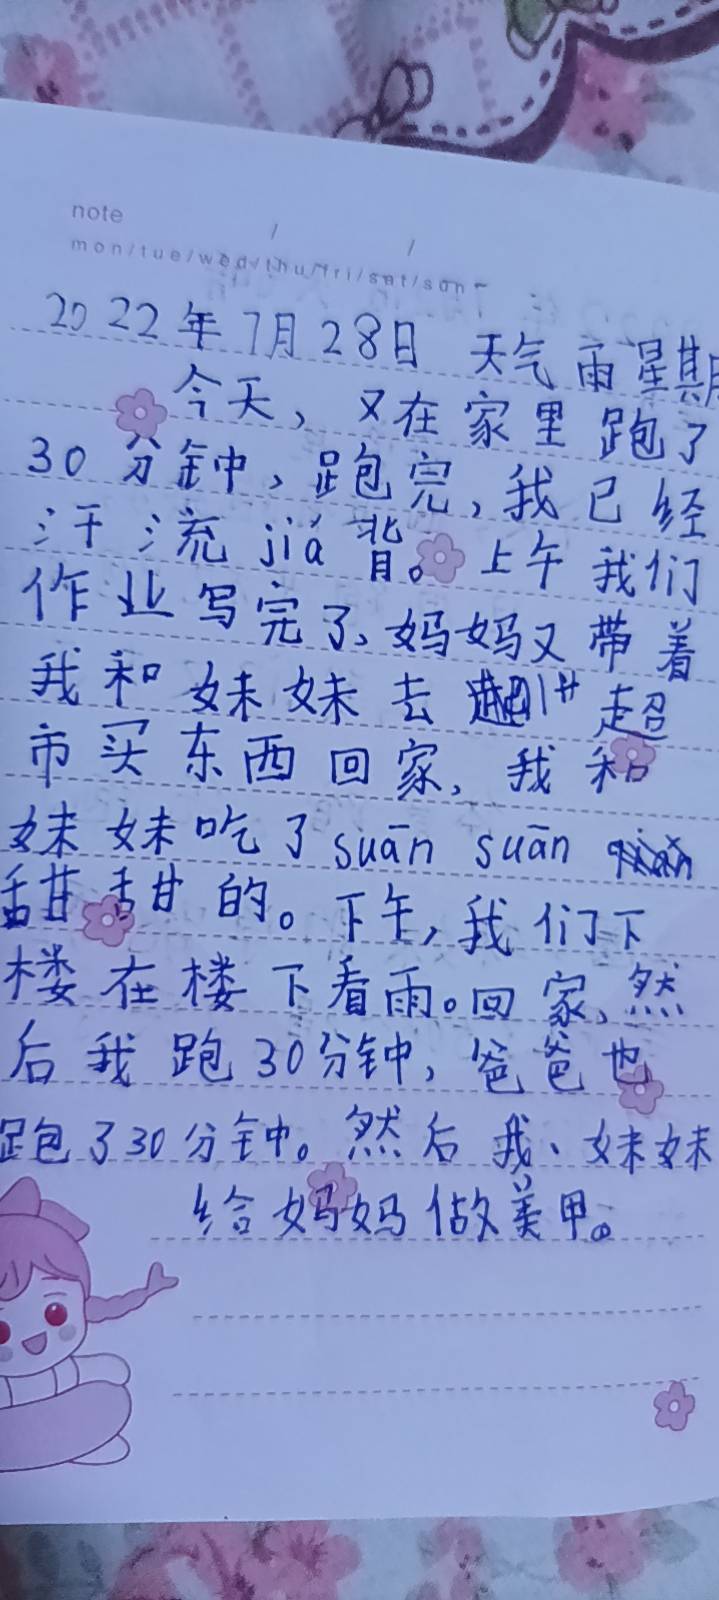 note
mon/tue/wed/thu/fri/sat/sun
2022年7月28日 天气雨星期
今天，又在家里跑了
30分钟，跑完，我已经
汗流jiá背。上午我们
作业写完了、妈妈又带着
我和妹妹去超
市买东西回家，我和
妹妹吃了suān suān
甜甜的。下午，我们下
楼在楼下看雨。回家、然
后我跑30分钟，爸爸也
跑了30分钟。然后我、妹妹
给妈妈做美甲。